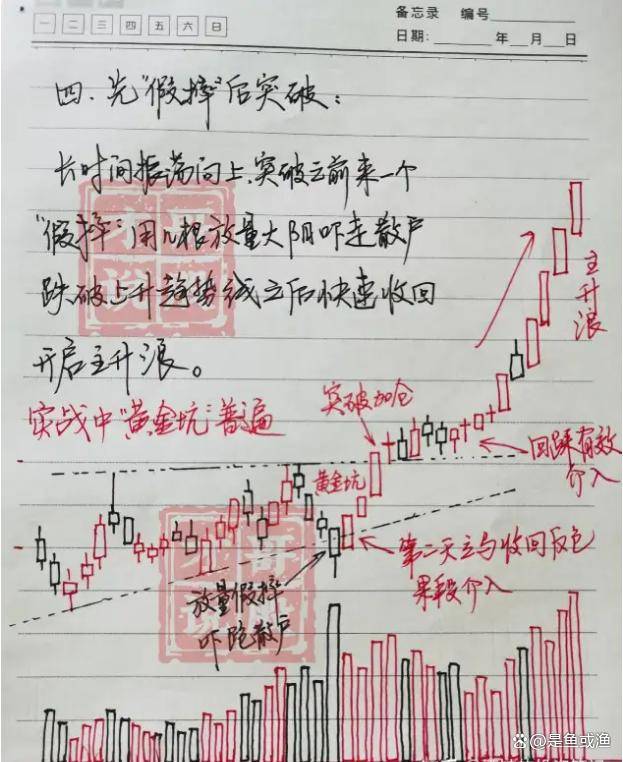 备忘录 编号
一 二 三 四 五 六 日
日期: 年 月 日
四.先“假摔”后突破:
长时间振荡向上.突破之前来一个
“假摔”用几根放量大阴吓走散户
跌破上升趋势线之后快速收回
开启主升浪。
实战中“黄金坑”普遍
主升浪
突破加仓
回踩有效
介入
黄金坑
第二天立马收回反包
果段介入
放量假摔
吓跑散户
@是鱼或渔